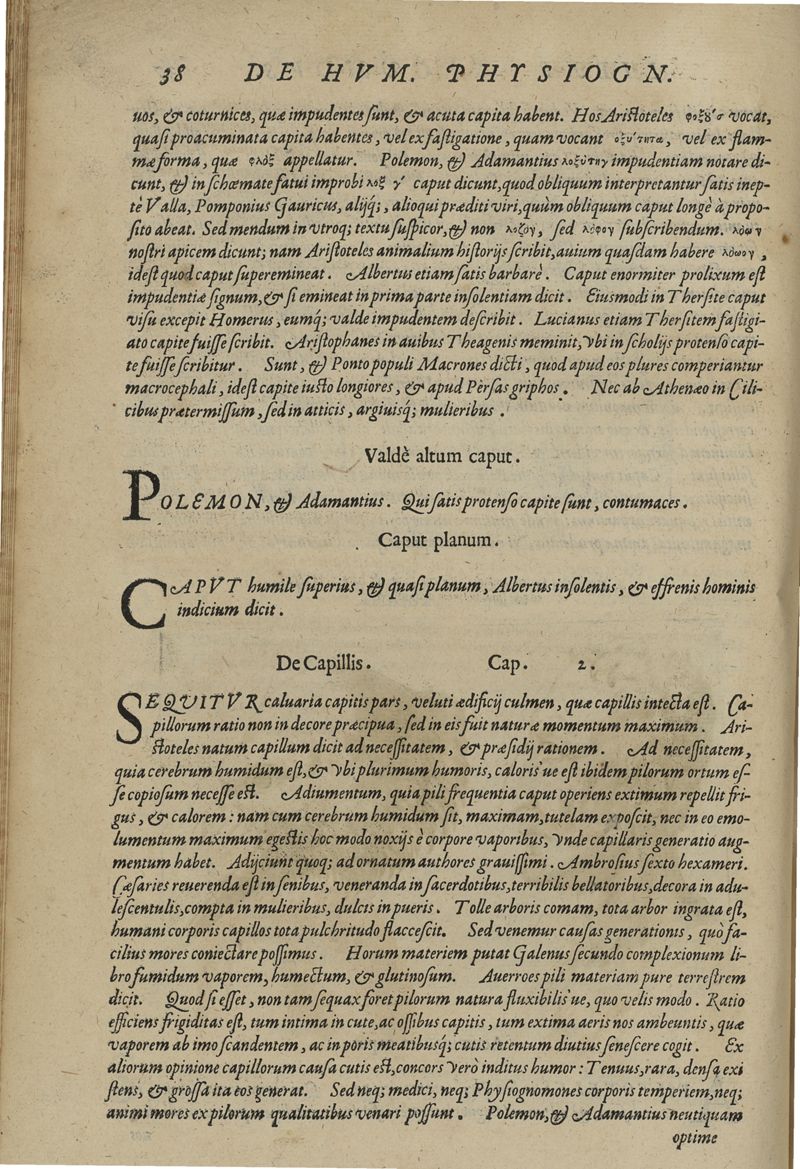 38 DE HVM. PHYSIOGN.
uos, & coturnices, quæ impudentes sunt, & acuta capita habent. Hos Aristoteles vocāt,
quasi proacuminata capita habentes, vel ex fastigatione, quam vocant ὀξύτητα, vel ex flam-
mæ forma, quæ φλὸξ appellatur. Polemon, & Adamantius λοξύτην impudentiam notare di-
cunt, & in schœmate fatui improbi caput dicunt, quod obliquum interpretantur satis inep-
tè Valla, Pomponius Gauricus, alijq́; , alioqui præditi viri, quùm obliquum caput longè à propo-
sito abeat. Sed mendum in vtroq; textu suspicor, & non λοζὸν, sed λόφον subscribendum.
nostri apicem dicunt; nam Aristoteles animalium historijs scribit, auium quasdam habere
idest quod caput superemineat. Albertus etiam satis barbarè. Caput enormiter prolixum est
impudentiæ signum, & si emineat in prima parte insolentiam dicit. Eiusmodi in Thersite caput
visu excepit Homerus, eumq́; valde impudentem describit. Lucianus etiam Thersitem fastigi-
ato capite fuisse scribit. Aristophanes in auibus Theagenis meminit, vbi in scholijs protenso capi-
te fuisse scribitur. Sunt, & Ponto populi Macrones dicti, quod apud eos plures comperiantur
macrocephali, idest capite iusto longiores, & apud Pèrsas griphos. Nec ab Athenæo in Cili-
cibus prætermissum, sed in atticis, argiuisq; mulieribus.
Valdè altum caput.
POLEMON, & Adamantius. Qui satis protenso capite sunt, contumaces.
Caput planum.
CAPVT humile superius, & quasi planum, Albertus insolentis, & effrenis hominis
indicium dicit.
De Capillis. Cap. 2.
SEQVITVR caluaria capitis pars, veluti ædificij culmen, quæ capillis intecta est. Ca-
pillorum ratio non in decore præcipua, sed in eis fuit naturæ momentum maximum. Ari-
stoteles natum capillum dicit ad necessitatem, & præsidij rationem. Ad necessitatem,
quia cerebrum humidum est, & vbi plurimum humoris, caloris´ue est ibidem pilorum ortum es-
se copiosum necesse est. Adiumentum, quia pili frequentia caput operiens extimum repellit fri-
gus, & calorem: nam cum cerebrum humidum sit, maximam, tutelam exposcit, nec in eo emo-
lumentum maximum egestis hoc modo noxijs è corpore vaporibus, vnde capillaris generatio aug-
mentum habet. Adijciunt quoq; ad ornatum authores grauissimi. Ambrosius sexto hexameri.
Cæsaries reuerenda est in senibus, veneranda in sacerdotibus, terribilis bellatoribus, decora in adu-
lescentulis, compta in mulieribus, dulcis in pueris. Tolle arboris comam, tota arbor ingrata est,
humani corporis capillos tota pulchritudo flaccescit. Sed venemur causas generationis, quò fa-
cilius mores coniectare possimus. Horum materiem putat Galenus secundo complexionum li-
bro fumidum vaporem, humectum, & glutinosum. Auerroes pili materiam pure terrestrem
dicit. Quod si esset, non tam sequax foret pilorum natura fluxibilis´ue, quo velis modo. Ratio
efficiens frigiditas est, tum intima in cute, ac ossibus capitis, tum extima aeris nos ambeuntis, quæ
vaporem ab imo scandentem, ac in poris meatibusq; cutis retentum diutius senescere cogit. Ex
aliorum opinione capillorum causa cutis est, concors verò inditus humor: Tenuus, rara, densa exi
stens, & grossa ita eos generat. Sed neq; medici, neq; Physiognomones corporis temperiem, neq;
animi mores ex pilorum qualitatibus venari possunt. Polemon, & Adamantius neutiquam
optime